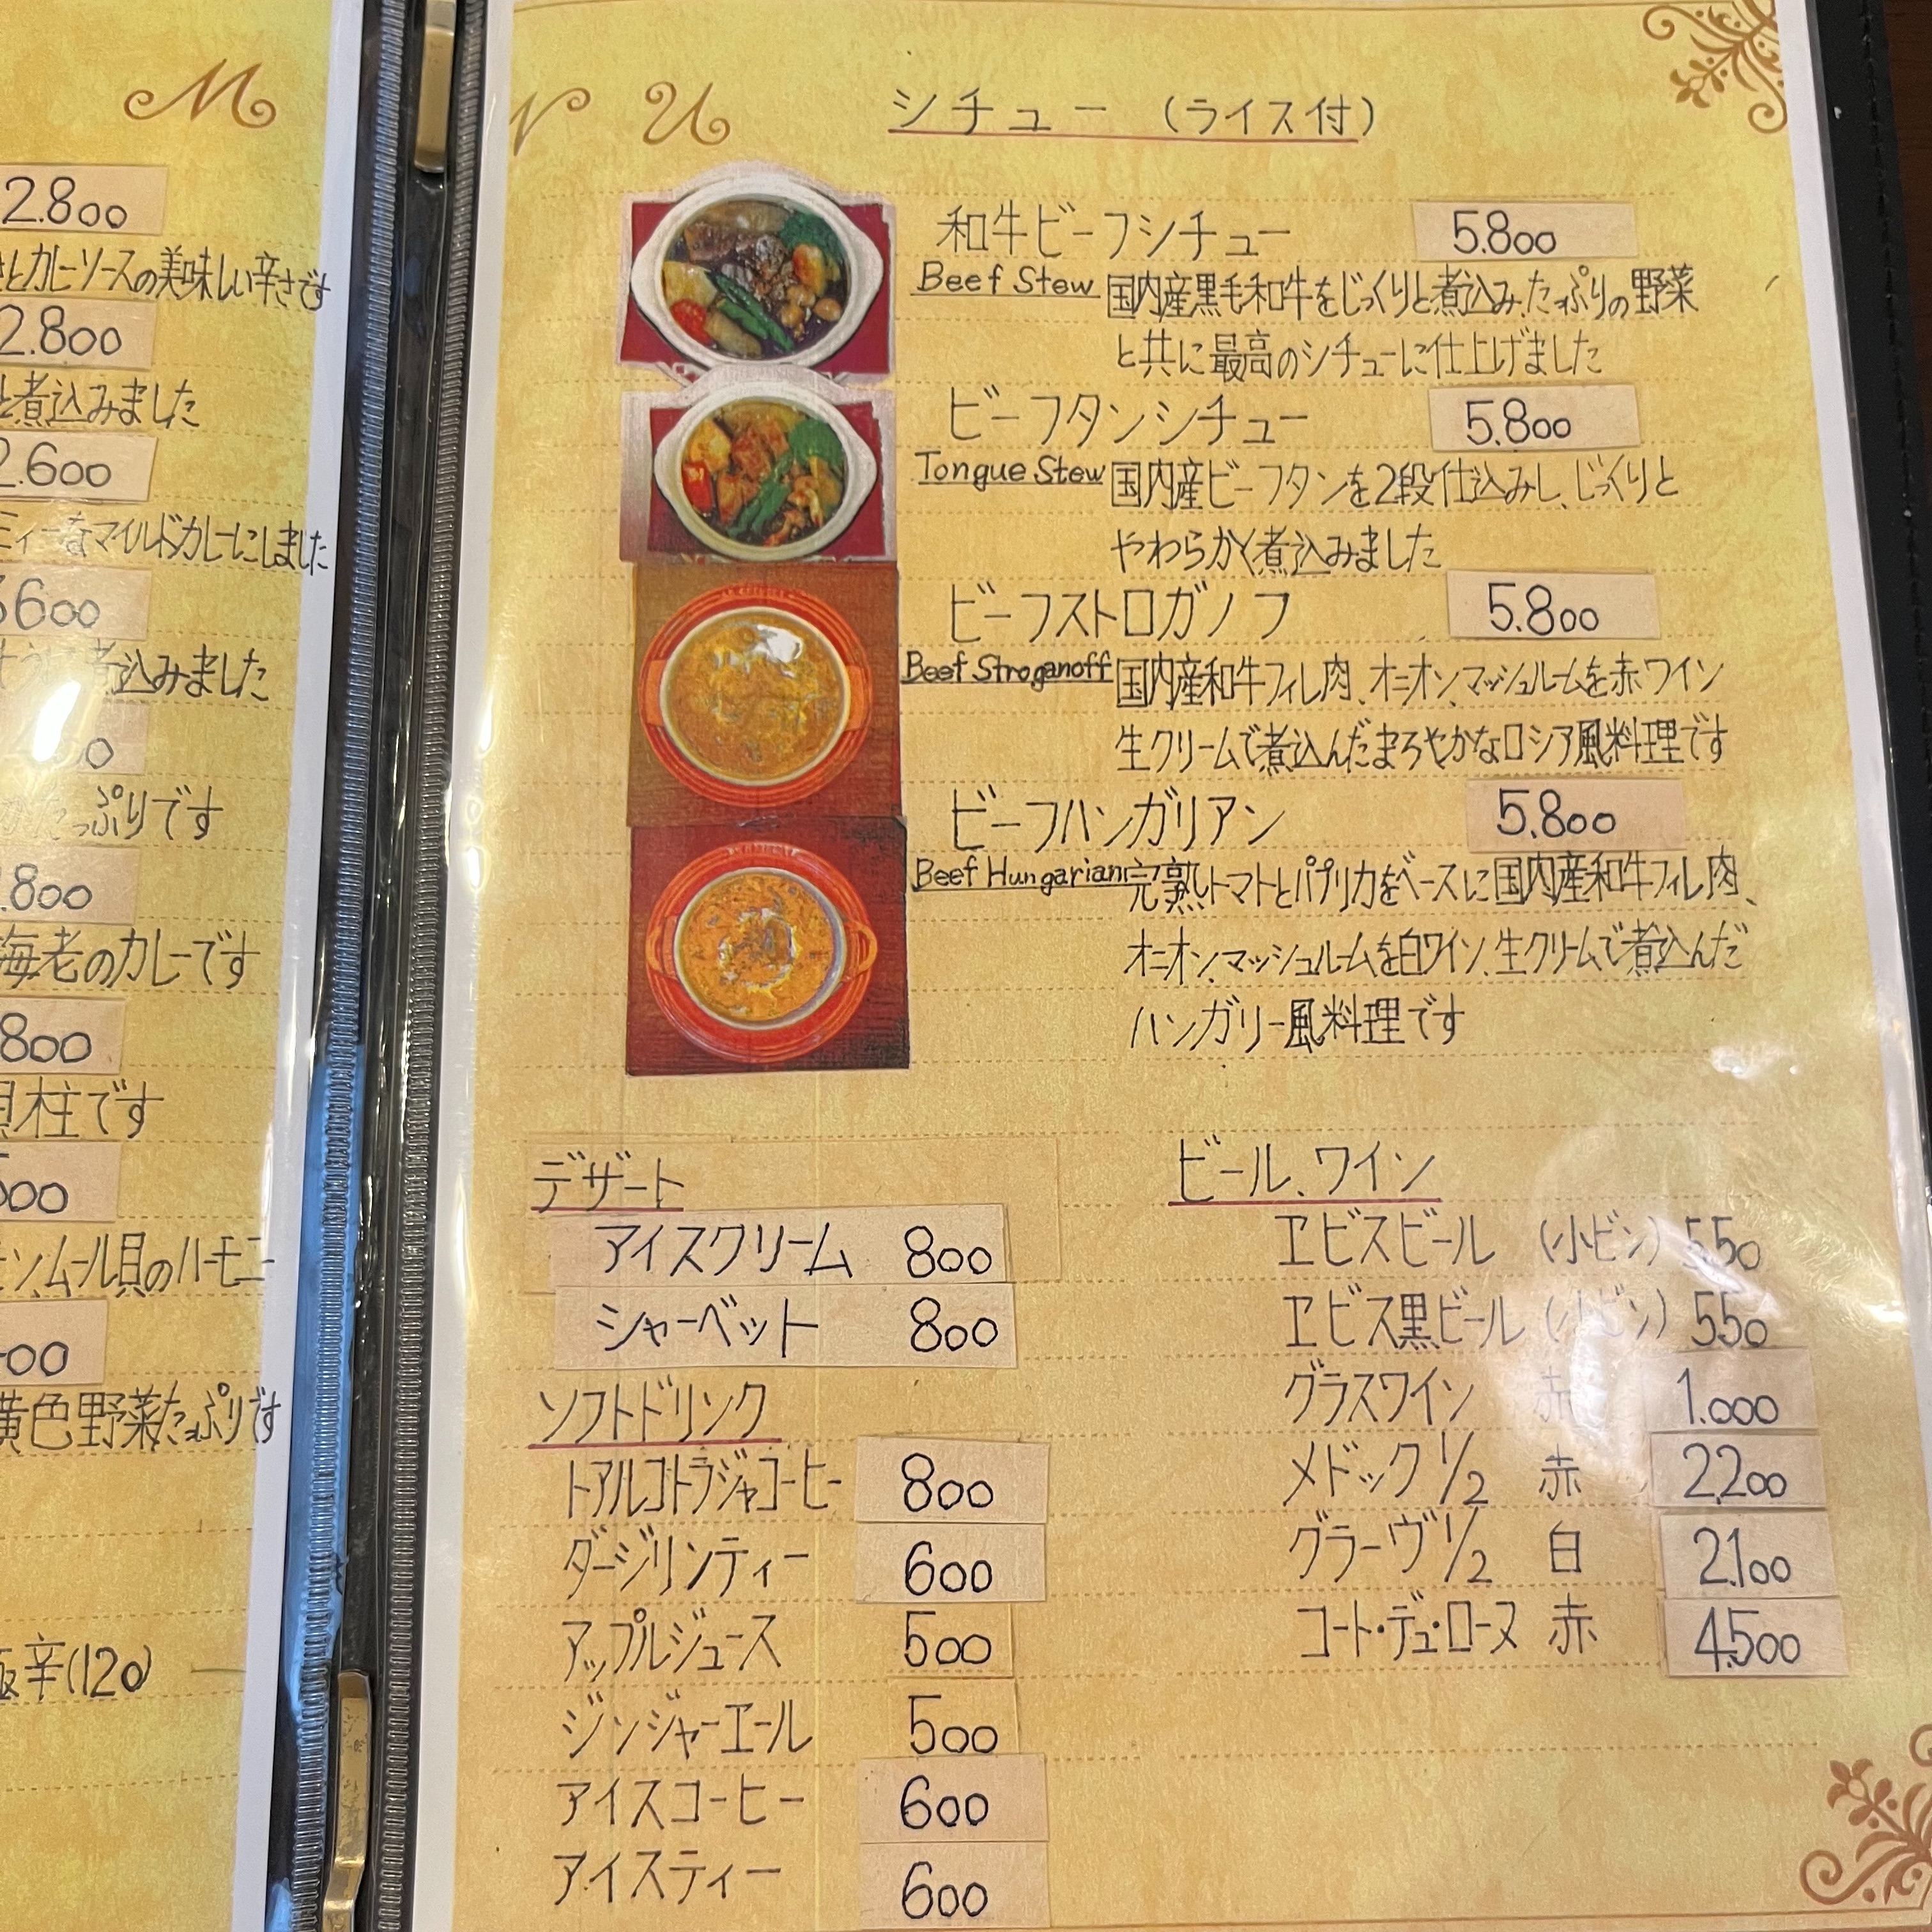 M
2.800
とカレーソースの美味しい辛さです
2.800
と煮込みました
2.600
ミィーなマイルドカレーにしました
3600
煮込みました
たっぷりです
.800
海老のカレーです
800
貝柱です
00
ン、ムール貝のハーモニー
00
黄色野菜たっぷりです
辛(120)
N U
シチュー (ライス付)
和牛ビーフシチュー 5.800
Beef Stew 国内産黒毛和牛をじっくりと煮込み、たっぷりの野菜
と共に最高のシチューに仕上げました
ビーフタンシチュー 5.800
Tongue Stew 国内産ビーフタンを2段仕込みし、じっくりと
やわらかく煮込みました
ビーフストロガノフ 5.800
Beef Stroganoff 国内産和牛フィレ肉、オニオン、マッシュルームを赤ワイン
生クリームで煮込んだまろやかなロシア風料理です
ビーフハンガリアン 5.800
Beef Hungarian 完熟トマトとパプリカをベースに国内産和牛フィレ肉、
オニオン、マッシュルームを白ワイン、生クリームで煮込んだ
ハンガリー風料理です
デザート
アイスクリーム 800
シャーベット 800
ソフトドリンク
トアルコトラジャコーヒー 800
ダージリンティー 600
アップルジュース 500
ジンジャーエール 500
アイスコーヒー 600
アイスティー 600
ビール、ワイン
ヱビスビール (小ビン) 550
ヱビス黒ビール (小ビン) 550
グラスワイン 赤 1.000
メドック 1/2 赤 2.200
グラーヴ 1/2 白 2.100
コート・デュ・ローヌ 赤 4.500